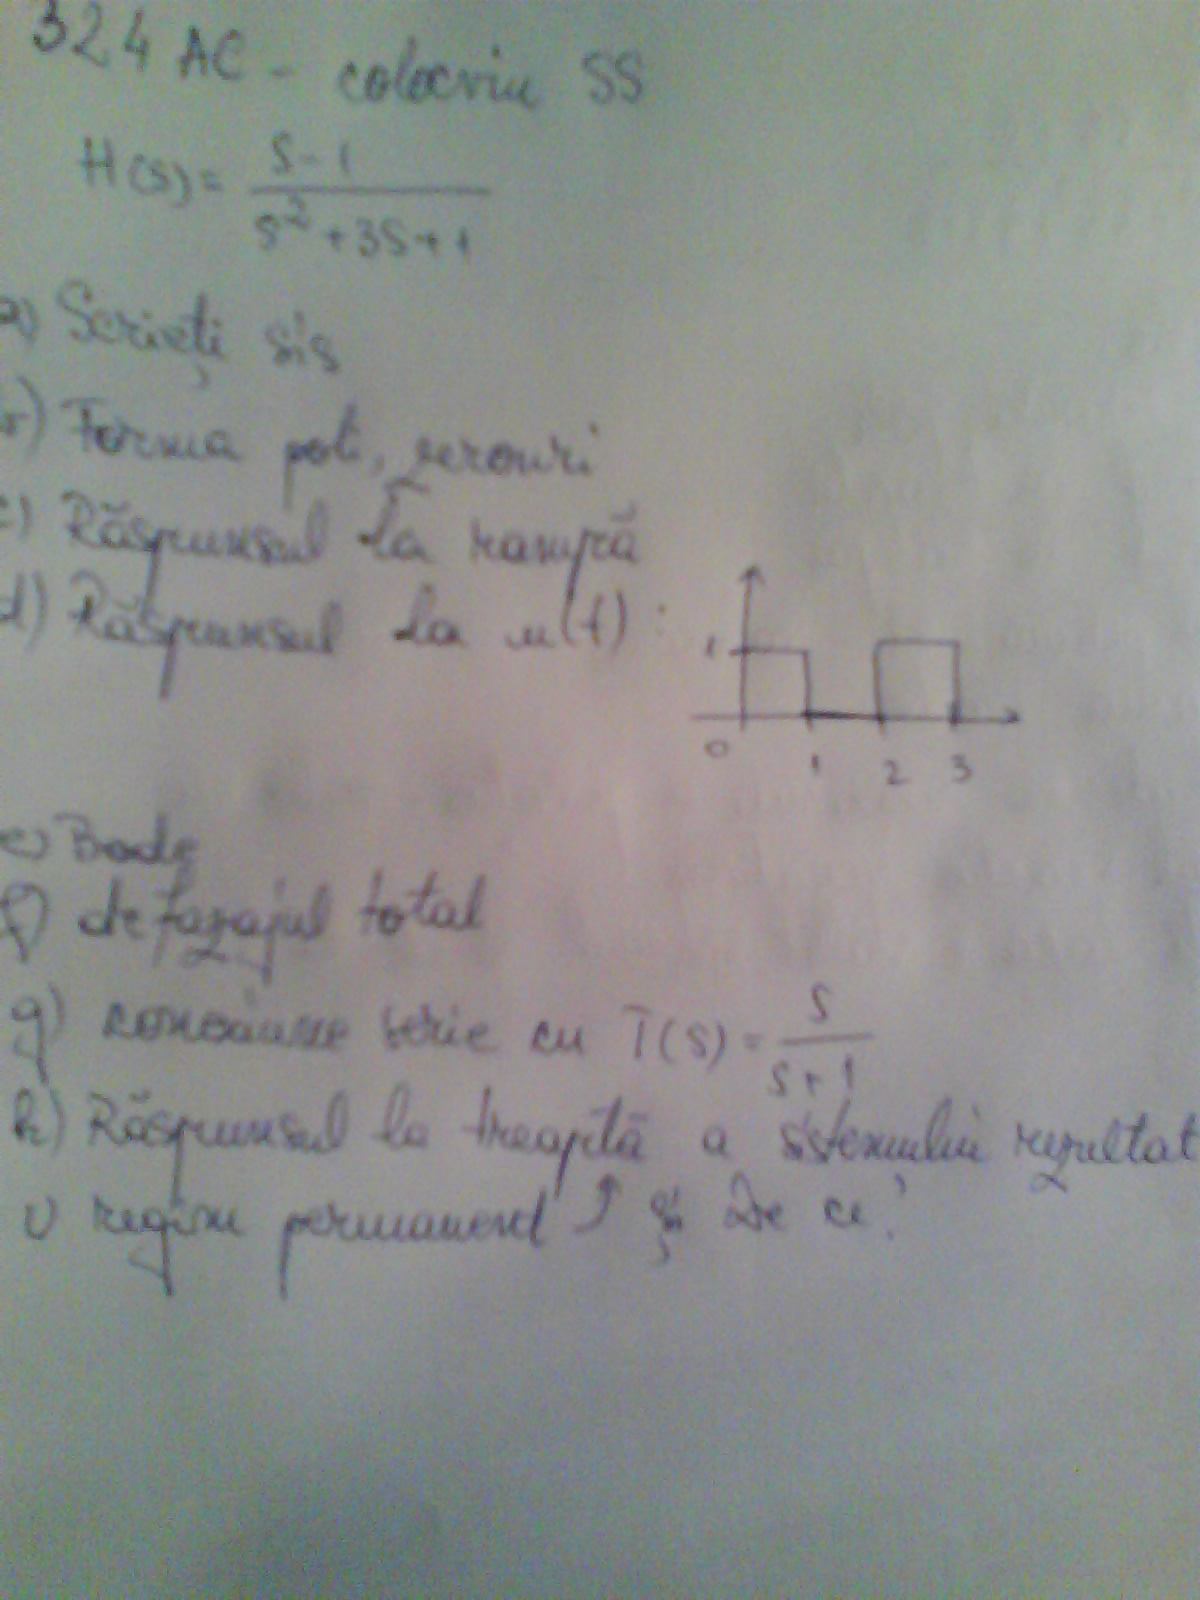 324 AC - colocviu SS
H(s) = s-1 / s²+3s+1
a) Scrieți sis
b) Forma poli, zerouri
c) Răspunsul la rampă
d) Răspunsul la u(t) :
1
0 1 2 3
e) Bode
f) defazajul total
g) conexiune serie cu T(s) = s / s+1
h) Răspunsul la treaptă a sistemului rezultat
i) regim permanent ? și De ce?